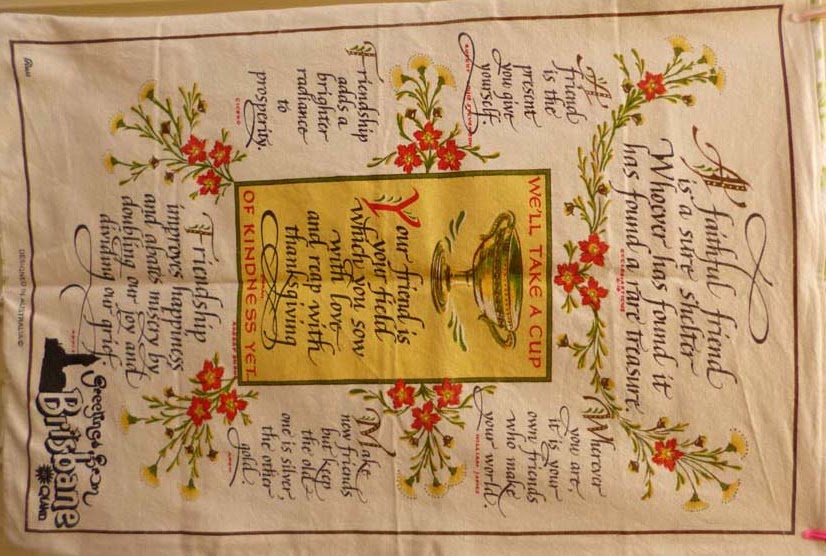 A faithful friend
is a sure shelter
Whoever has found it
has found a rare treasure.
A
friend
is the
present
you give
yourself
Wherever
you are,
it is your
own friends
who make
your world.
WILLIAM JAMES
WE'LL TAKE A CUP
Your friend is
your field
which you sow
with love
and reap with
thanksgiving
OF KINDNESS YET.
Friendship
adds a
brighter
radiance
to
prosperity.
CICERO
Make
new friends
but keep
the old
one is silver,
the other
gold
Friendship
improves happiness
and abates misery by
doubling our joy and
dividing our grief.
Greetings from
Brisbane
QLAND
DESIGNED IN AUSTRALIA ©